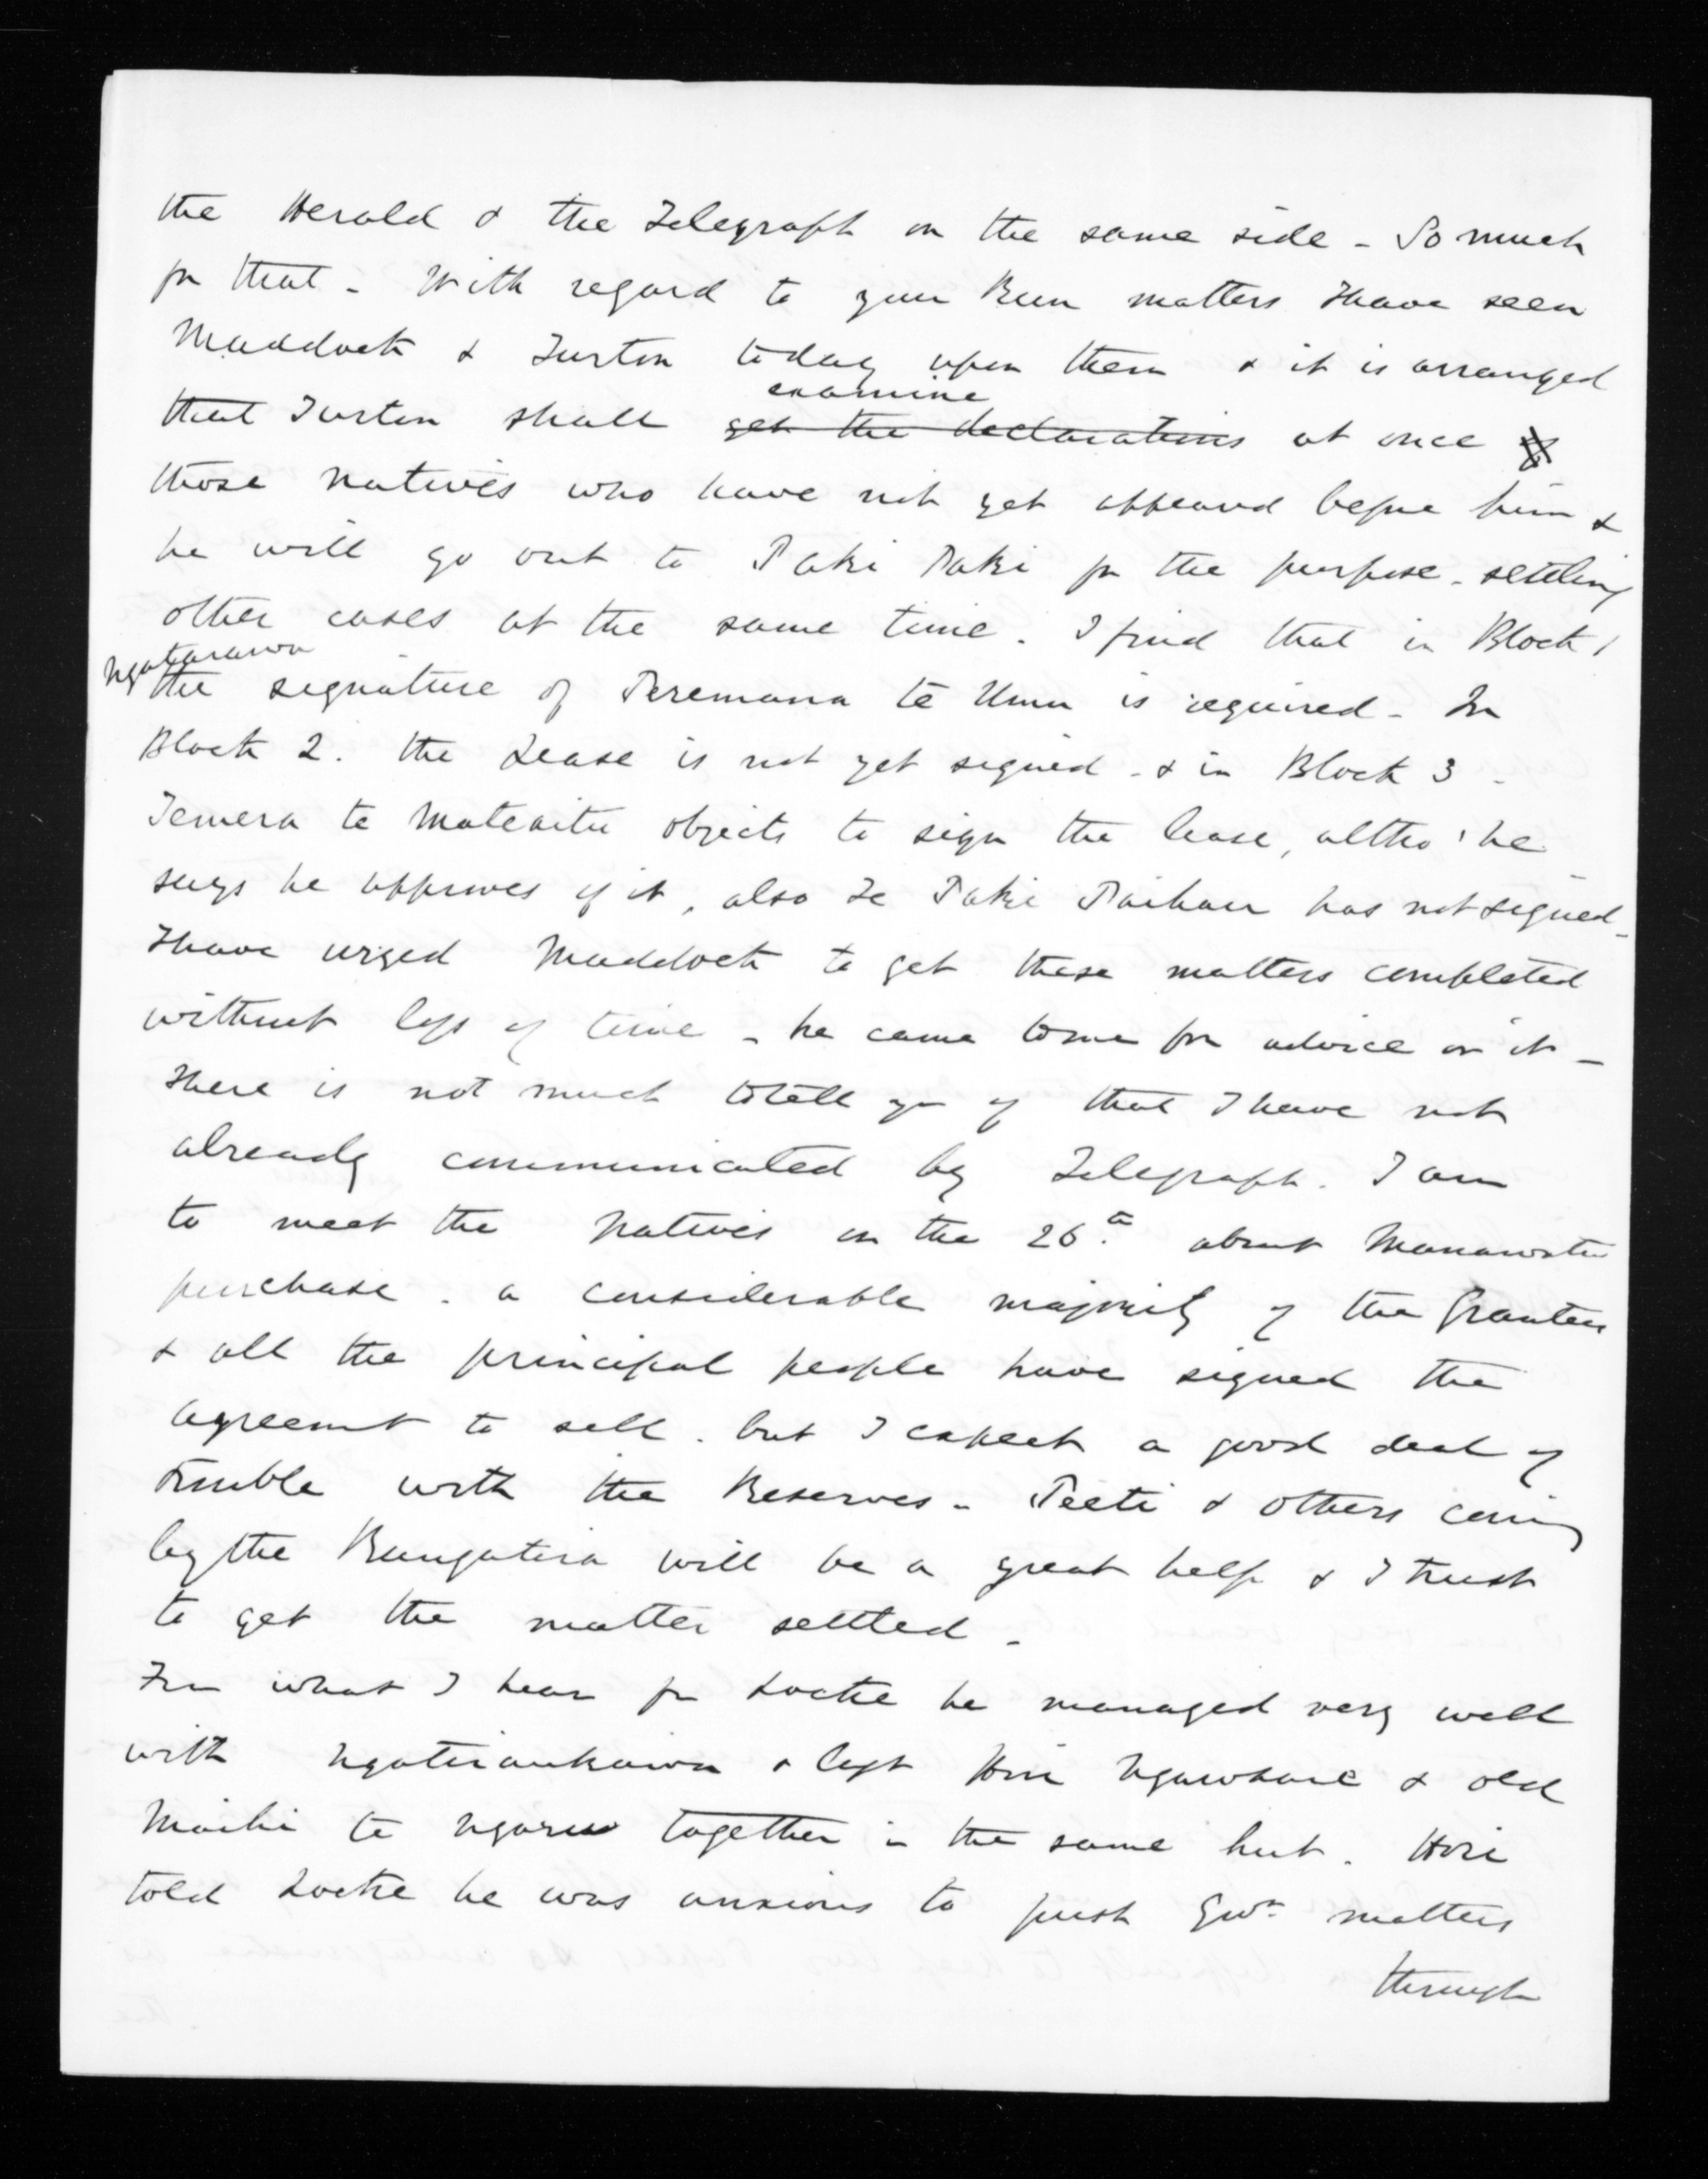 the Herald & the Telegraph on the same side - So much
for that - With regard to your Run matters I have seen
Maddock & Turton today upon them & it is arranged
that Turton shall get the declarations examine at once of
those natives who have not yet appeared before him &
he will go out to Paki Paki for the purpose - settling
other cases at the same time. I find that in Block 1
Ngatarawa
the signature of Peremana te Umu is required - In
Block 2. the Lease is not yet signed - & in Block 3 -
Temera te objects to sign the lease, altho' he
says he approves of it, also Te Paki has not signed -
I have urged Maddock to get these matters completed
without loss of time - he came to me for advice on it -
There is not much to tell you of that I have not
already communicated by Telegraph. I am
to meet the natives on the 26th about Manawatu
purchase. a considerable majority of the Grantees
& all the principal people have signed the
agreemt to sell. but I expect a good deal of
trouble with the Reserves - Peeti & others coming
by the Rangatira will be a great help & I trust
to get the matter settled -
From what I hear fm Locke he managed very well
with Ngatiraukawa & left Hori Ngawhare & old
Maihi te Ngaru together in the same hut. Hori
told Locke he was anxious to push Govt matters
through